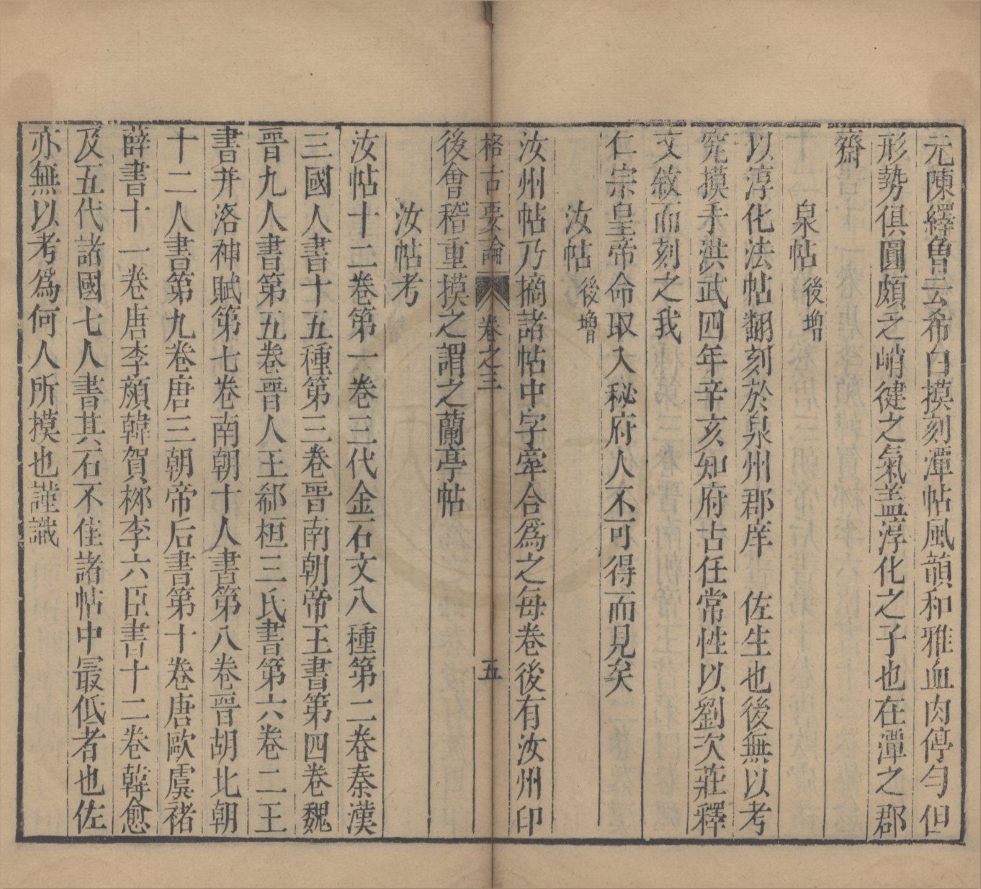 元陳繹曾云希白摸刻潭帖風韻和雅血肉停勻但
形勢俱圓頗乏峭健之氣盖淳化之子也在潭之郡
齋
泉帖 後增
以淳化法帖翻刻於泉州郡庠 佐生也後無以考
究摸手洪武四年辛亥知府古任常性以劉次莊釋
文敘而刻之我
仁宗皇帝命取入秘府人不可得而見矣
汝帖 後增
汝州帖乃摘諸帖中字牽合爲之每卷後有汝州印
格古要論 卷之三 五
後會稽重摸之謂之蘭亭帖
汝帖考
汝帖十二卷第一卷三代金石文八種第二卷秦漢
三國人書十五種第三卷晉南朝帝王書第四卷魏
晉九人書第五卷晉人王郗桓三氏書第六卷二王
書并洛神賦第七卷南朝十人書第八卷晉胡北朝
十二人書第九卷唐三朝帝后書第十卷唐歐虞褚
薛書十一卷唐李顏韓賀栁李六臣書十二卷韓愈
及五代諸國七人書其石不佳諸帖中最低者也佐
亦無以考爲何人所摸也謹識